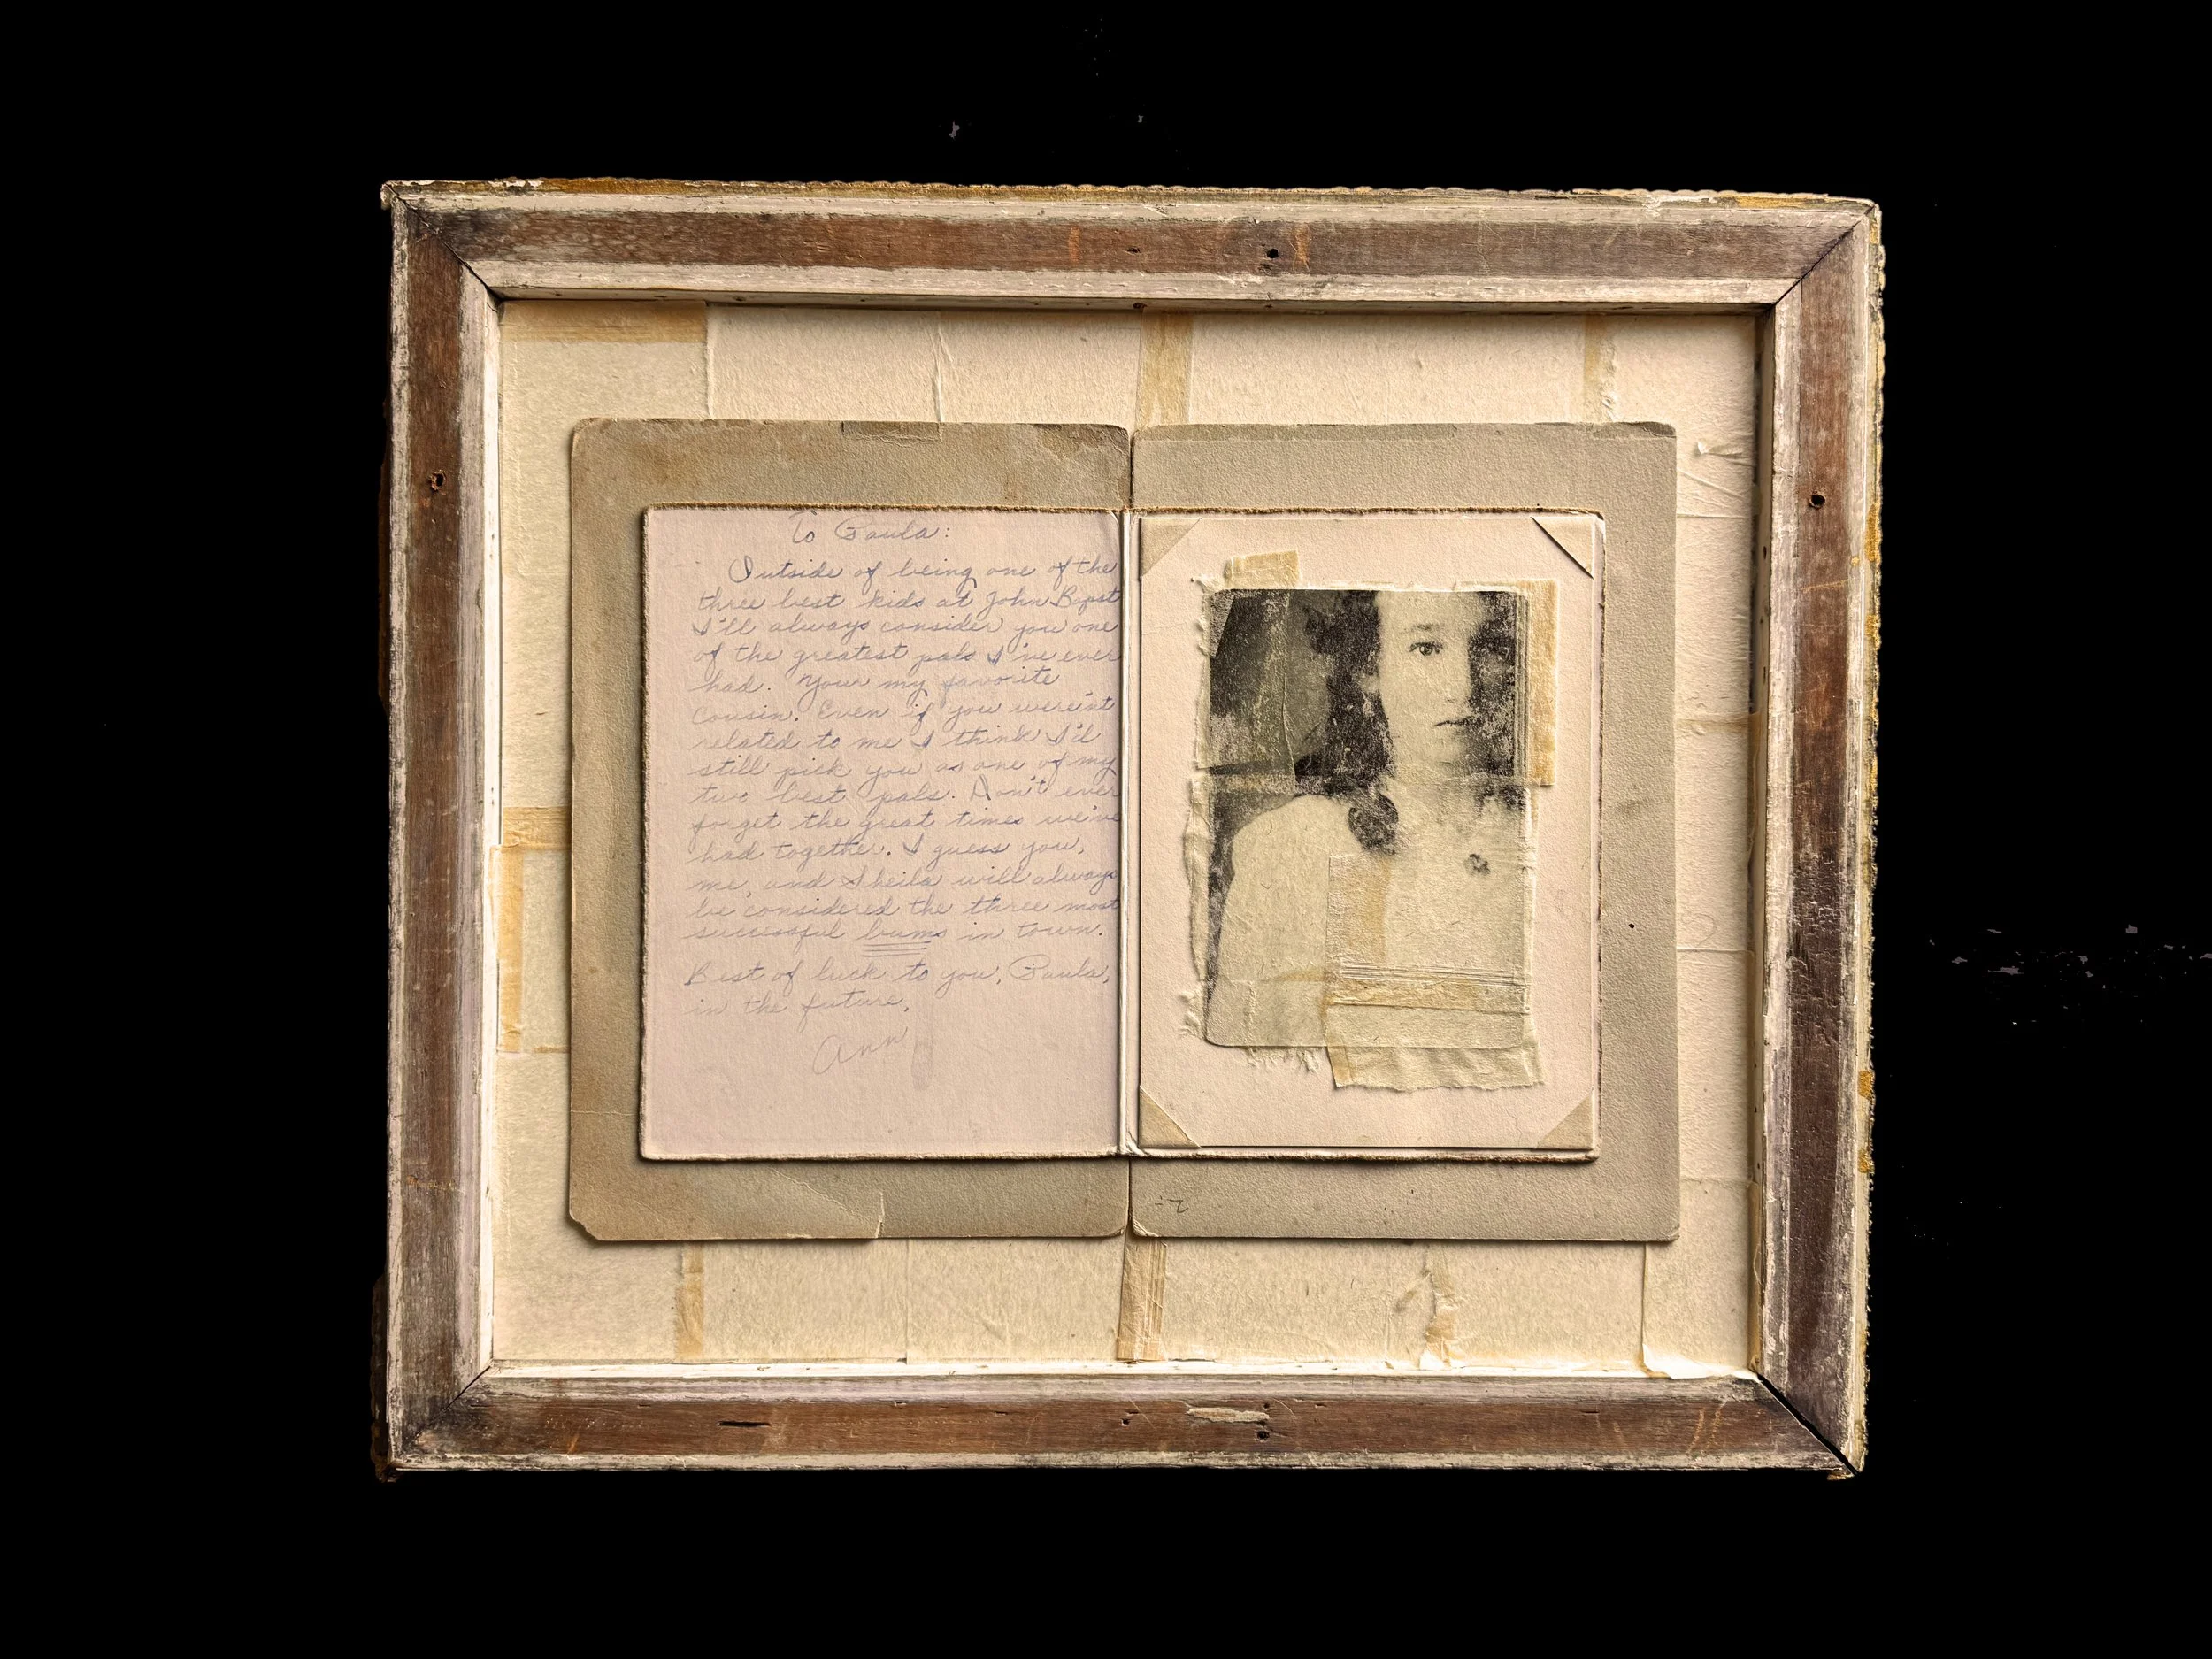 To Paula:
Outside of being one of the
three best kids at John Bapst
I'll always consider you one
of the greatest pals I've ever
had. Your my favorite
cousin. Even if you weren't
related to me I think I'd
still pick you as one of my
two best pals. Don't ever
forget the great times we've
had together. I guess you,
me, and Sheila will always
be considered the three most
successful bums in town.
Best of luck to you, Paula,
in the future,
Ann